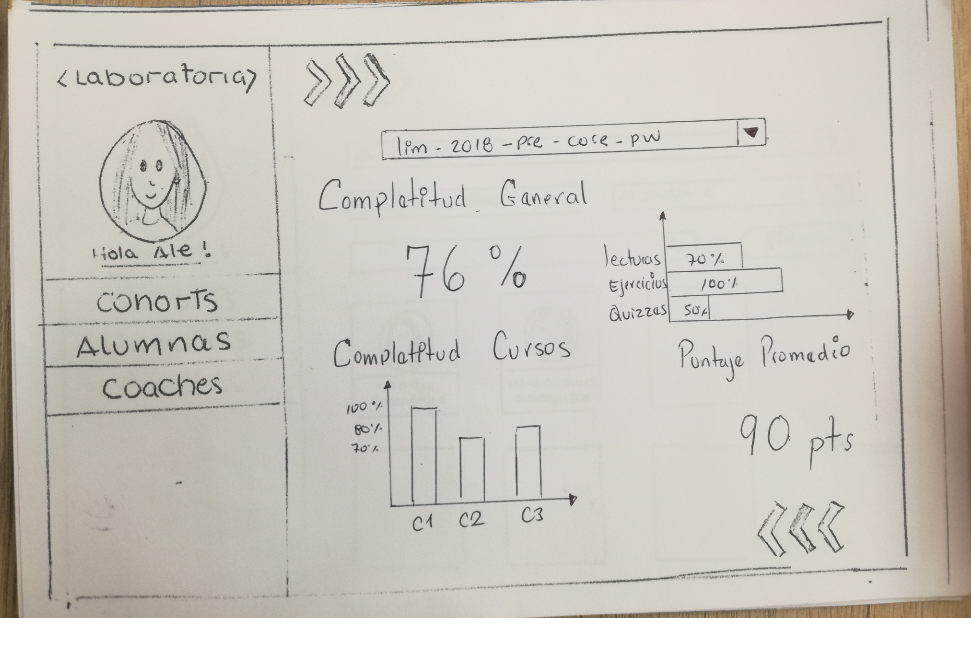 <Laboratoria>
Hola Ale!
Cohorts
Alumnas
Coaches
lim - 2018 - pre - core - pw
Complatitud General
76 %
lecturas 70%
Ejercicios 100%
Quizzas 50%
Complatitud Cursos
100%
80%
70%
C1 C2 C3
Pontaje Promedio
90 pts